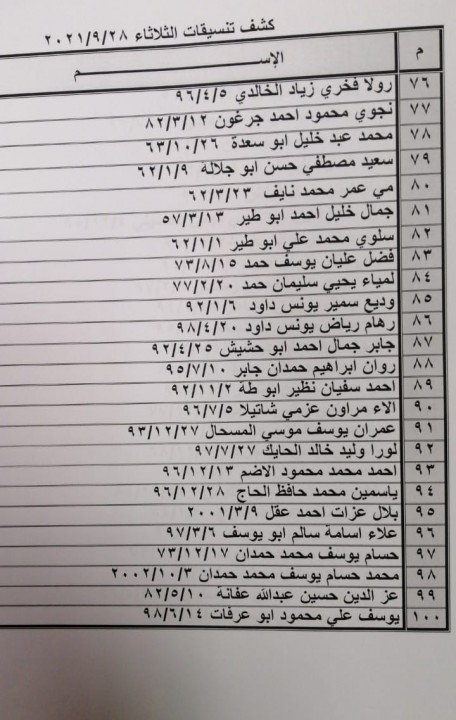 كشف تنسيقات الثلاثاء ٢٠٢١/٩/٢٨
م الإســـــــــــــــــم
٧٦ رولا فخري زياد الخالدي ٩٦/٤/٥
٧٧ نجوي محمود احمد جرغون ٨٢/٣/١٢
٧٨ محمد عبد خليل ابو سعدة ٦٣/١٠/٢٦
٧٩ سعيد مصطفي حسن ابو جلالة ٦٢/١/٩
٨٠ مي عمر محمد نايف ٦٢/٣/٢٣
٨١ جمال خليل احمد ابو طير ٥٧/٣/١٣
٨٢ سلوي محمد علي ابو طير ٦٢/١/١
٨٣ فضل عليان يوسف حمد ٧٣/٨/١٥
٨٤ لمياء يحيي سليمان حمد ٧٧/٢/٢٠
٨٥ وديع سمير يونس داود ٩٢/١/٦
٨٦ رهام رياض يونس داود ٩٨/٤/٢٠
٨٧ جابر جمال احمد ابو حشيش ٩٢/٤/٢٥
٨٨ روان ابراهيم حمدان جابر ٩٥/٧/١٠
٨٩ احمد سفيان نظير ابو طة ٩٢/١١/٢
٩٠ الاء مراون عزمي شاتيلا ٩٦/٧/٥
٩١ عمران يوسف موسي المسحال ٩٣/١٢/٢٧
٩٢ لورا وليد خالد الحايك ٩٧/٧/٢٧
٩٣ احمد محمد محمود الاضم ٩٦/١٢/١٣
٩٤ ياسمين محمد حافظ الحاج ٩٦/١٢/٢٨
٩٥ بلال عزات احمد عقل ٢٠٠١/٣/٩
٩٦ علاء اسامة سالم ابو يوسف ٩٧/٣/٦
٩٧ حسام يوسف محمد حمدان ٧٣/١٢/١٧
٩٨ محمد حسام يوسف محمد حمدان ٢٠٠٢/١٠/٣
٩٩ عز الدين حسين عبدالله عفانة ٨٢/٥/١٠
١٠٠ يوسف علي محمود ابو عرفات ٩٨/٦/١٤